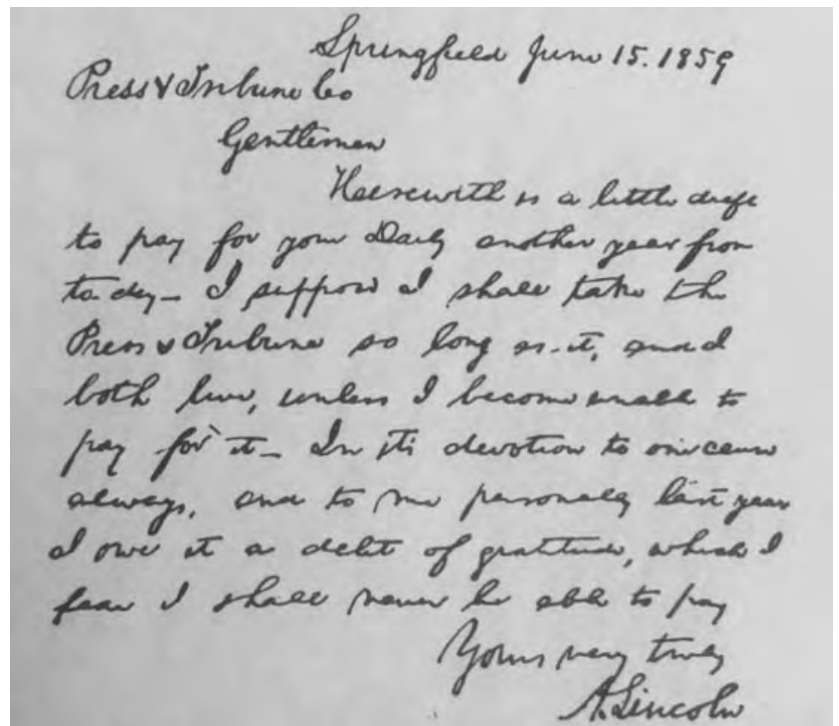 Springfield June 15. 1859
Press & Tribune Co
Gentlemen
Herewith is a little draft
to pay for your Daily another year from
to-day– I suppose I shall take the
Press & Tribune so long as it, and I
both live, unless I become unable to
pay for it– In its devotion to our cause
always, and to me personally last year
I owe it a debt of gratitude, which I
fear I shall never be able to pay
Yours very truly
A. Lincoln